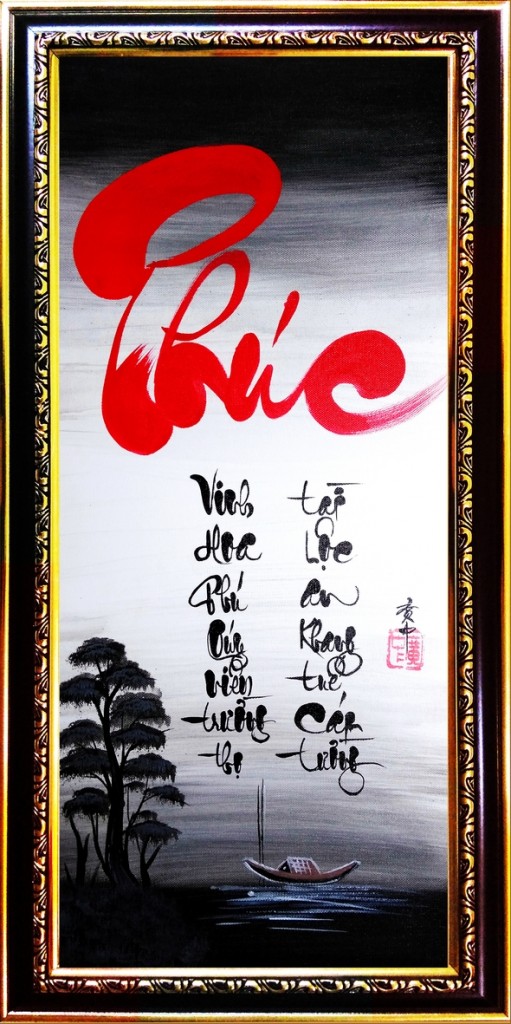 Phúc
Vinh Hoa Phú Quý viễn trường thọ
tài Lộc an Khang thế Cát tường